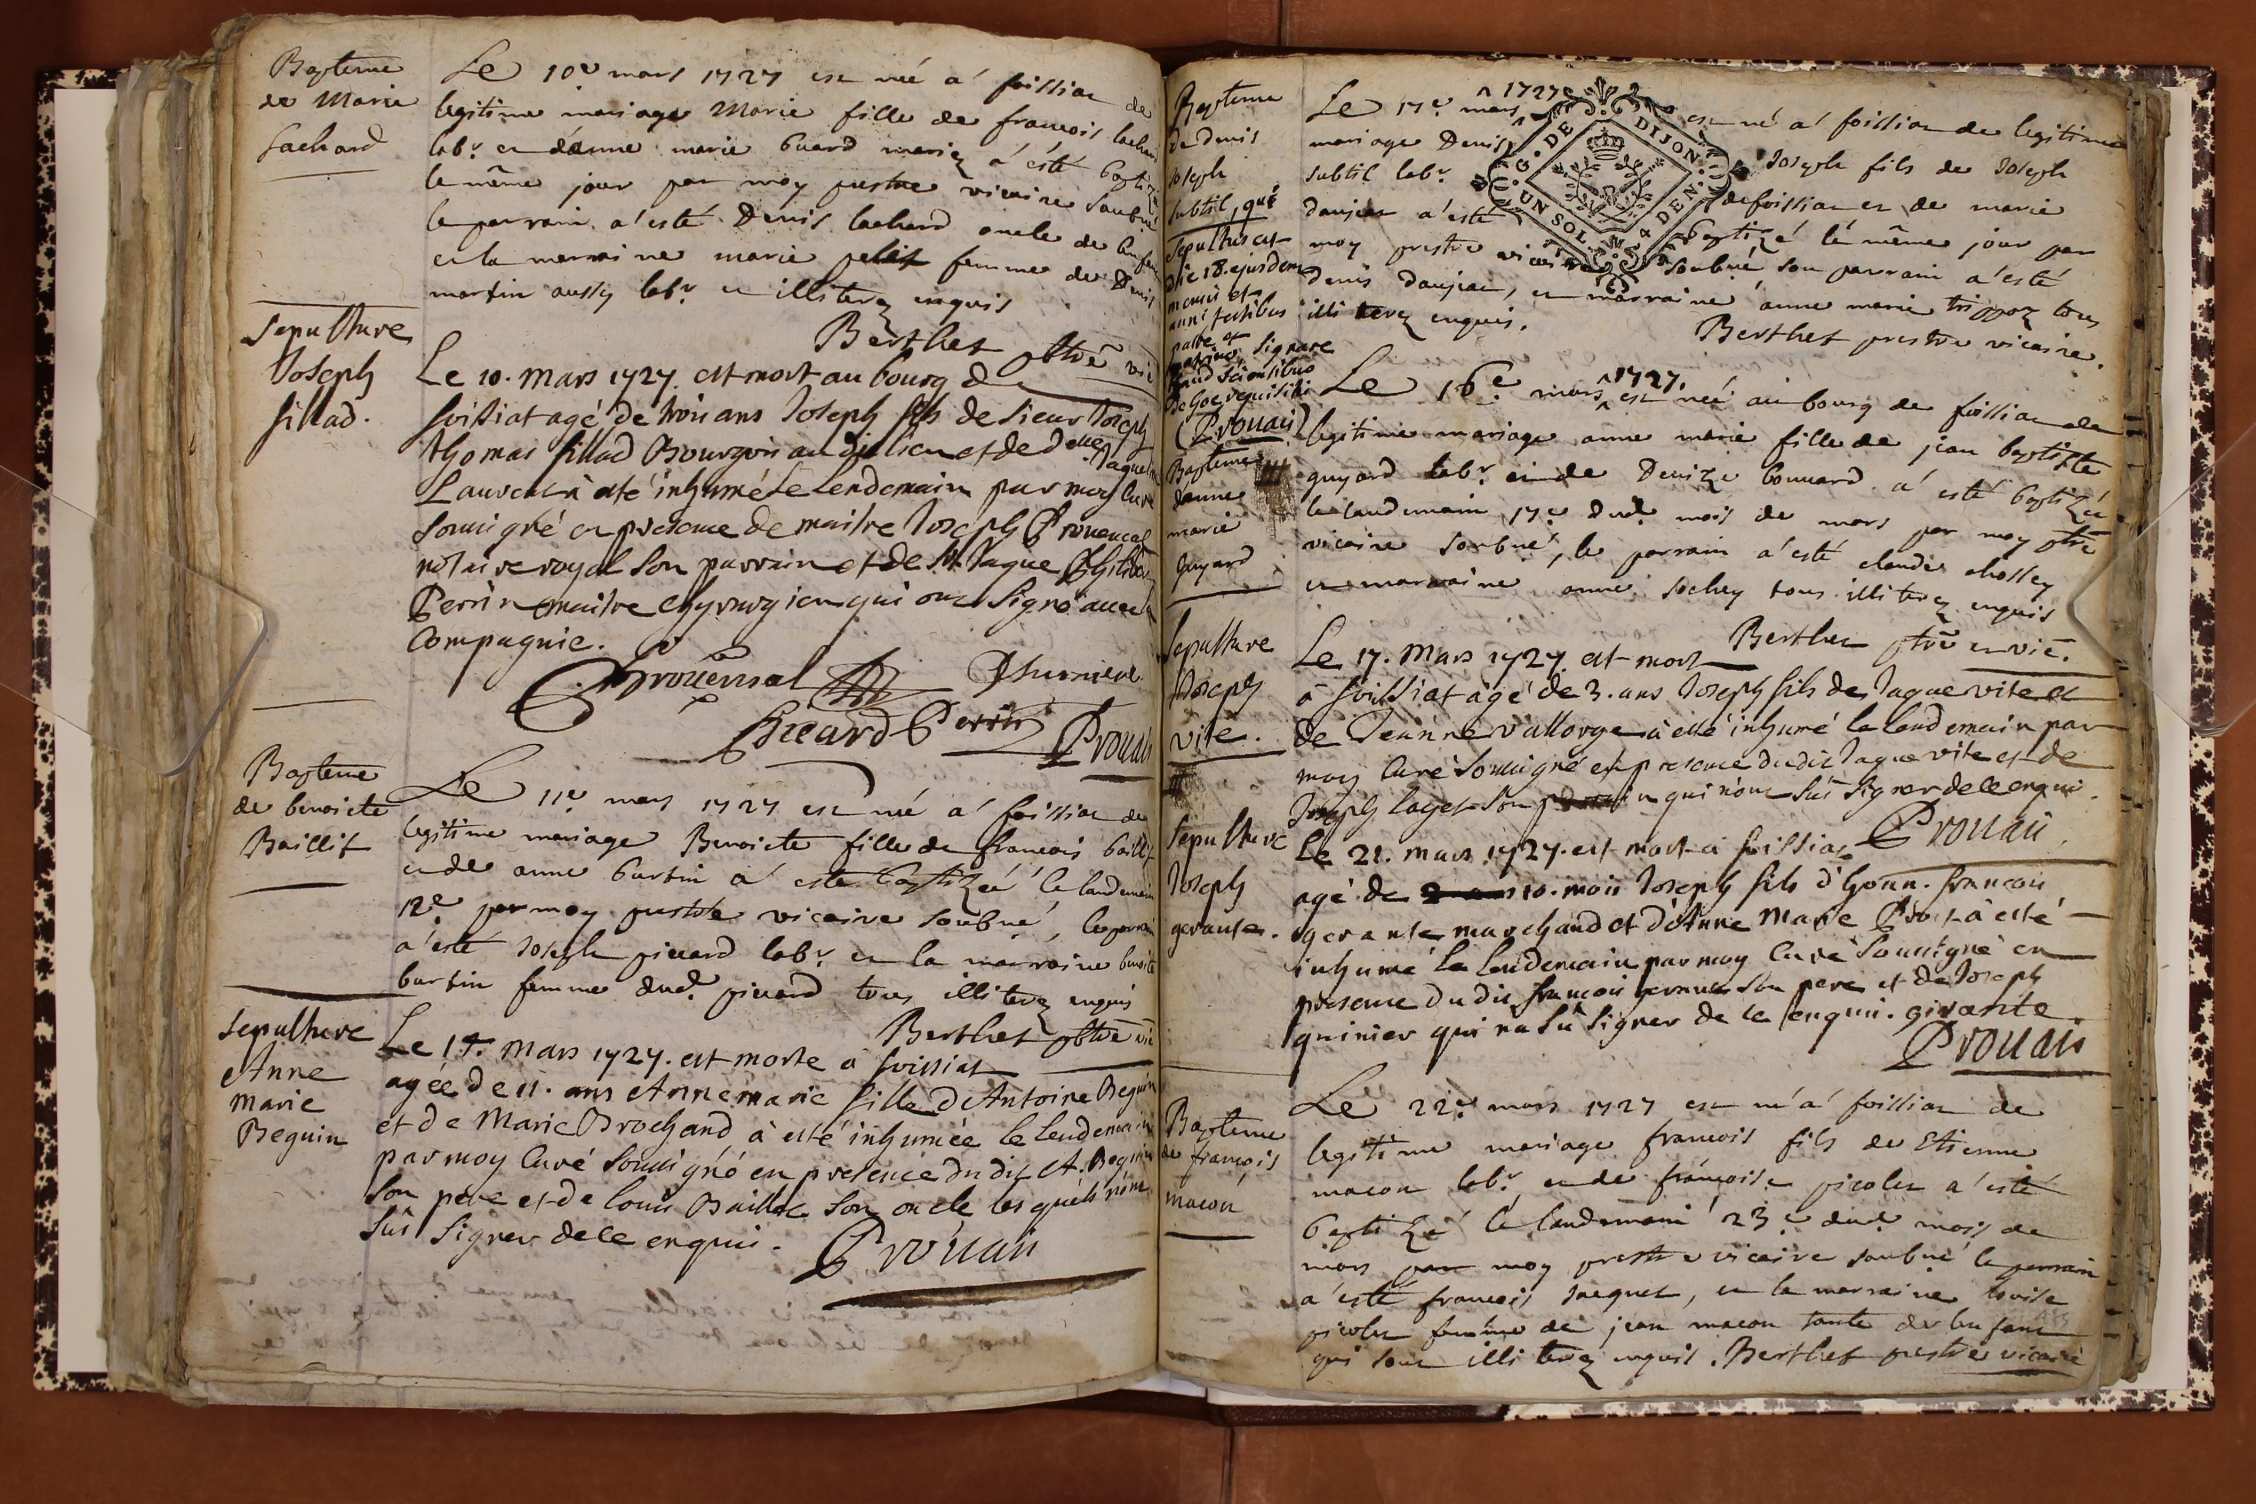 Bapteme
de Marie
Lachard
Le 10e mars 1727 est né a foissiat de
legitime mariage Marie fille de francois lachard
labr. et danne marie Guard mariez a esté baptizée
le même jour par moy prestre vicaire soubné
le parrain a esté Denis lachard oncle de lenfant
et la marraine marie petit femme de Denis
martin aussy labr. et illiterez enquis
Berthet ptre vic
Sepulture
Joseph
fillad.
Le 10. Mars 1727. est mort au bourg de
foissiat agé de trois ans Joseph fils de sieur Joseph
thomas fillad Bourgois au dit lieu et de delle Jaqueline
Laurent à eté inhumé Le Lendemain par moy Curé
soussigné en presence de maitre Joseph Prouencal
notaire royal son parrain et de Mr. Jaque Philibert
Perrin maitre chyrurgien qui ont signé auec la
Compagnie.
Proüensal Dhumieres
Chicard Perrin Prouais
Bapteme
de benoicte
Baillif
Le 11e mars 1727 est né a foissiat de
legitime mariage Benoicte fille de francois baillif
et de anne burtin a esté baptizée le landemain
12e. par moy prestre vicaire soubné, le parrain
a esté Joseph picard labr. et la marraine benoite
burtin femme dud. picard tous illiterez enquis
Berthet ptre vic
Sepulture
Anne
marie
Beguin
Le 14. Mars 1727. est morte à foissiat
agée de 11. ans Anne marie fille d'Antoine Beguin
et de Marie Brochand à esté inhumée le lendemain
par moy Curé soussigné en presence du dit A. Beguin
son pere et de louis Baillet son oncle les quels n'ont
sûs signer de ce enquis. Prouais
Bapteme
de denis
Joseph
subtil, qui
sepultus est
die 18. ejusdem
mensis et
anni testibus
patre et
patrino signare
haud scientibus
de hoc requisitis
Prouais
Le 17e. mars ^ 1727 est né a foissiat de legitime
mariage Denis Joseph fils de Joseph
subtil labr. de foissiat et de marie
danjeat a esté baptizé le même jour par
moy prestre vicaire soubné son parrain a esté
denis danjeat, et marraine anne marie trippoz tous
illiterez enquis.
Berthet prestre vicaire.
G. DE DIJON
UN SOL. 4 DEN.
Bapteme
danne
marie
Guyard
Le 16e. mars ^1727. est née au bourg de foissiat de
legitime mariage anne marie fille de jean baptiste
guyard labr. et de Denize bonnard a esté baptizée
le landemain 17e. dud. mois de mars par moy ptre
vicaire soubné, le parrain a esté claude chossey
et marraine anne sochey tous illiterez enquis
Berthet ptre et vic.
Sepulture
Joseph
vite.
Le 17. Mars 1727. est mort
à foissiat âgé de 3. ans Joseph fils de Jaque vite et
de Jeanne vallorge à esté inhumé le lendemain par
moy Curé soussigné en presence du dit Jaque vite et de
Joseph layet son parrain qui n'ont sûs signer de ce enquis.
Prouais
Sepulture
Joseph
gerante.
Le 21. mars 1727. est mort à foissiat
agé de 10. mois Joseph fils d'honn. francois
gerante marchand et d'Anne Marie Prost à esté
inhumé le lendemain par moy Curé soussigné en
presence du dit francois gerante son pere et de Joseph
guinier qui n'a sû signer de ce enquis. girante.
Prouais
Bapteme
de françois
macon
Le 22e. mars 1727 est né a foissiat de
legitime mariage francois fils de Etienne
macon labr. et de françoise picolet a esté
baptizé le landemain 23e. dud. mois de
mars par moy prestre vicaire soubné le parrain
a esté francois Jacquet, et la marraine Louise
picolet femme de jean macon tante de lenfant
qui sont illiterez enquis. Berthet prestre vicaire